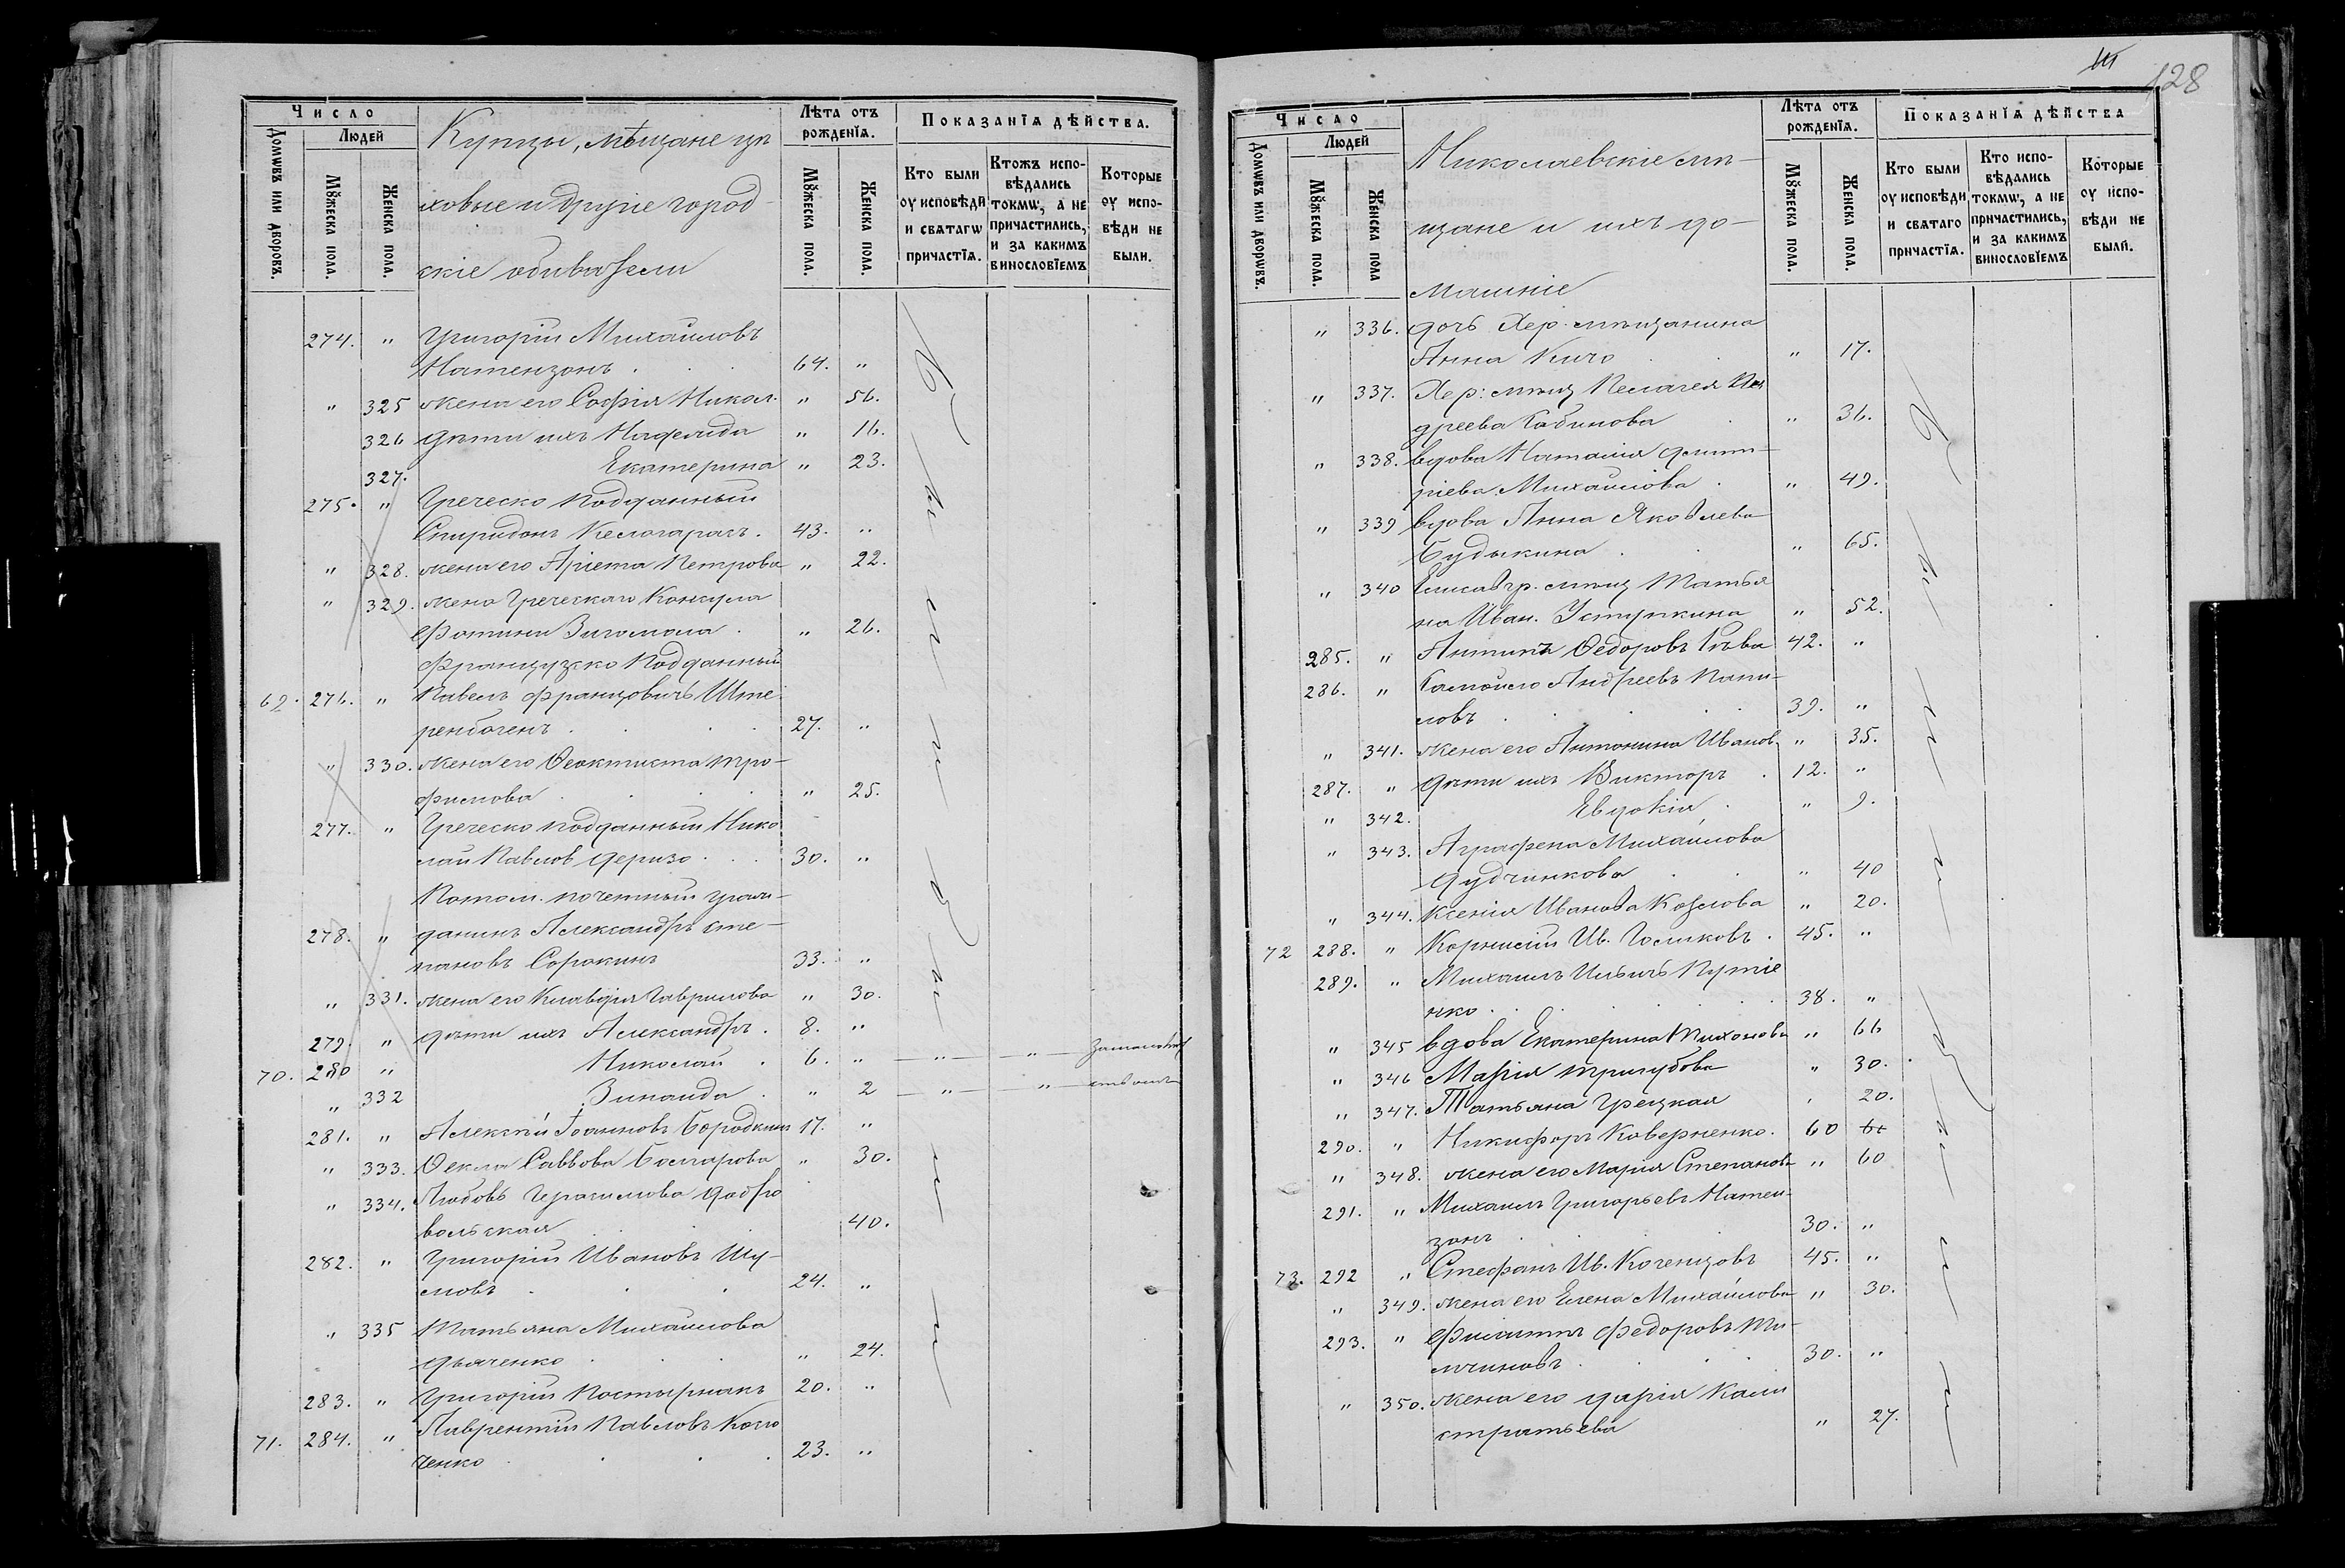 Число
Домωвъ или дворовъ.
Людей
Мꙋжеска пола.
Женска пола.
Купцы, мѣщане це
ховые и другіе город-
скіе обыватели
Лѣта отъ рожденїѧ.
Мꙋжеска пола.
Женска пола.
Показанїѧ дѣйства.
Кто были оу исповѣди и свѧтагω причастїѧ.
Ктожъ исповѣдались токмω, а не причастились, и за какимъ винословїемъ
Которые оу исповѣди не были.
274. " Григорій Михаиловъ
Натензонъ . 64. "
" 325 жена его Софія Никол. " 56.
326 дѣти ихъ " 16.
327. Екатерина " 23.
275. " Греческо подданный
Спиридонъ 43. "
" 328. жена его Петрова " 22.
" 329. жена Греческаго Консула
Фотини " 26.
Французско подданный
69. 276. " Павелъ Францовичъ Ште
ренбогенъ . 27. "
" 330. жена его Ѳеоктиста Тро-
фимова . " 25.
277. " Греческо подданный Нико
лай Павлов 30. "
Потом. почетный граж-
278. " данинъ Александръ Сте-
пановъ Сорокинъ 33. "
" 331. жена его Клавдія Гаврилова " 30.
279. " дѣти ихъ Александръ . 8. "
70. 280 " Николай . 6. " — " — " —
" 332 Зинаида . " 2 — " — " —
281. " Алексѣй Іоанновъ Бородкинъ 17. "
" 333. Ѳекла Саввова Болгарова " 30.
" 334. Любовь Герасимова Добро
вольская 40.
282. " Григорій Ивановъ Шу-
мовъ . 24. "
" 335 Татьяна Михаилова
Дьяченко . " 24.
283. " Григорій Постырнакъ 20. "
71. 284. " Лаврентій Павловъ
ченко . 23. "
128
Число
Домωвъ или дворωвъ.
Людей
Мꙋжеска пола.
Женска пола
Николаевскіе мѣ-
щане и ихъ до-
машніе
Лѣта отъ рожденїѧ.
Мꙋжеска пола.
Женска пола.
Показанїѧ дѣйства
Кто были оу исповѣди и свѧтаго причастїѧ.
Кто исповѣдались токмω, а не причастились, и за какимъ винословїемъ
Которые оу исповѣди не были.
" 336. дочь Хер. мѣщанина
Анна Кичо " 17.
" 337. Хер: мѣщ Пелагея
дреева " 36.
" 338. вдова Наталія Дмит-
ріева Михаилова . " 49.
" 339 вдова Анна Яковлева
Будыкина . " 65.
" 340 Елисавгр. мѣщ Татья
на Иван. " 52.
285. " Антипъ Ѳедоровъ 42. "
286. " Самойло Андреевъ
ловъ . 39. "
" 341. жена его Антонина Иванов. " 35.
287. " дѣти ихъ Викторъ . 12. "
" 342. Евдокія . " 9.
" 343. Аграфена Михаилова
Дудчинкова . " 40
" 344. Ксенія Иванова Козлова " 20.
72 288. " Корнилій Ив. Голиковъ . 45. "
289. " Михаилъ Ильичъ
нко . 38. "
" 345 вдова Екатерина Тихонова " 66
" 346 Марія Тригубова " 30.
" 347. Татьяна Грецкая . 20.
290. " Никифоръ Коверненко. 60
" 348. жена его Марія Степанова " 60
291. " Михаилъ Григорьевъ Натен-
зонъ 30. "
73. 292 " Стефанъ Ив. Коченцовъ 45. "
" 349. жена его Елена Михаилова " 30.
293. " Филиппъ Федоровъ
30. "
" 350. жена его Дарія Кали
стратьева " 27.